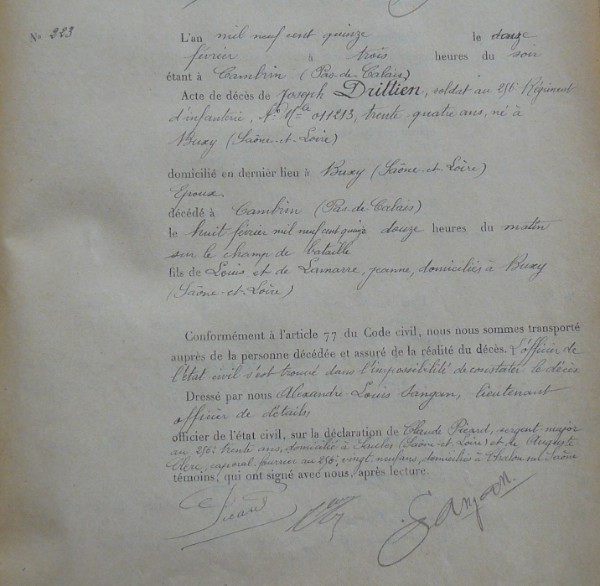 No 223
L'an mil neuf cent quinze le douze
février à trois heures du soir
étant à Cambrin (Pas-de-Calais)
Acte de décès de Joseph Drillien, soldat au 256e Régiment
d'infanterie, No Mle 011213, trente quatre ans, né à
Buxy (Saône-et-Loire)
domicilié en dernier lieu à Buxy (Saône-et-Loire)
Epoux
décédé à Cambrin (Pas-de-Calais)
le huit février mil neuf cent quinze douze heures du matin
sur le champ de bataille
fils de Louis et de Lamarre, jeanne, domiciliés à Buxy
(Saône-et-Loire)
Conformément à l'article 77 du Code civil, nous nous sommes transporté
auprès de la personne décédée et assuré de la réalité du décès. L'officier de
l'état civil s'est trouvé dans l'impossibilité de constater le décès
Dressé par nous Alexandre Louis Sangan, lieutenant
officier de détails,
officier de l'état civil, sur la déclaration de Claude Picard, sergent-major
au 256; trente ans, domicilié à (Saône et Loire) et de Auguste
caporal fourrier au 256; vingt neuf ans, domicilié à Chalon-sur-Saône
témoins, qui ont signé avec nous, après lecture.
Picard